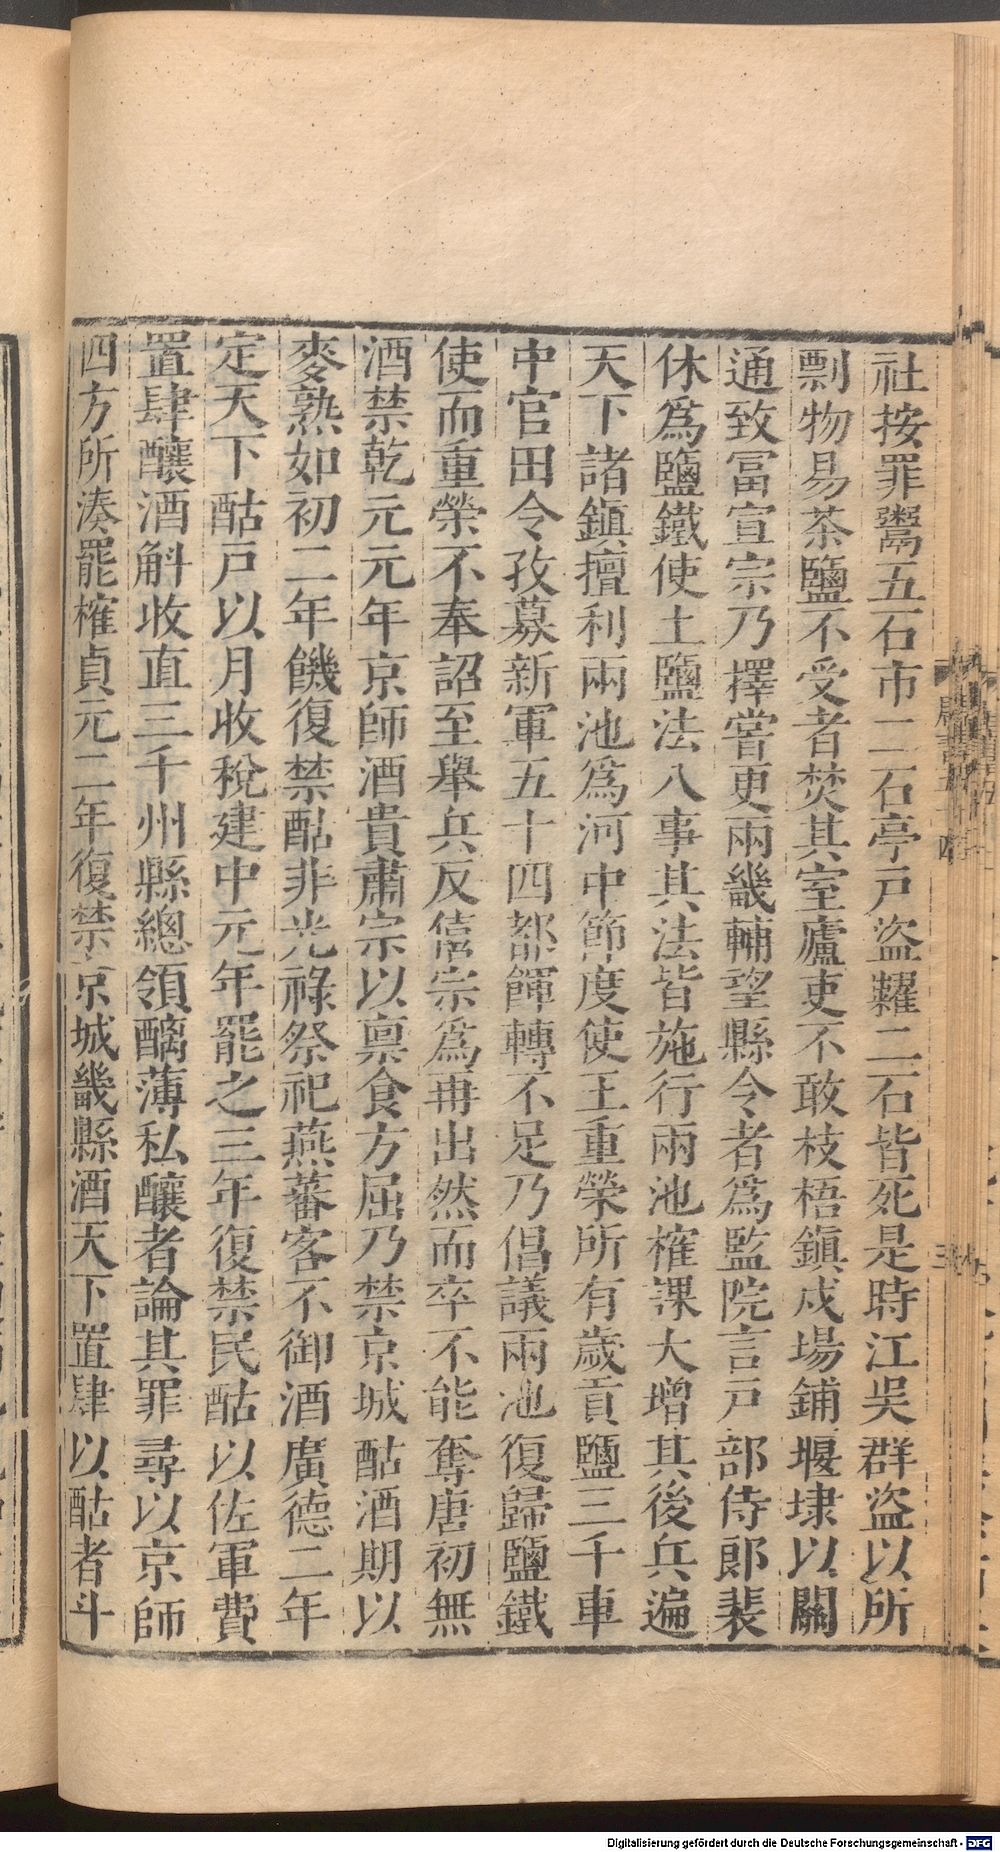 社按罪鬻五石市二石亭戶盜糶二石皆死是時江吳群盜以所
剽物易茶鹽不受者焚其室廬吏不敢枝梧鎮戍場鋪堰埭以關
通致冨宣宗乃擇嘗更兩畿輔望縣令者爲監院言戶部侍郎裴
休爲鹽鐵使上鹽法八事其法皆施行兩池榷課大增其後兵遍
天下諸鎮擅利兩池爲河中節度使王重榮所有歲貢鹽三千車
中官田令孜募新軍五十四都餫轉不足乃倡議兩池復歸鹽鐵
使而重榮不奉詔至舉兵反僖宗爲再出然而卒不能奪唐初無
酒禁乾元元年京師酒貴肅宗以禀食方屈乃禁京城酤酒期以
麥熟如初二年饑復禁酤非光祿祭祀燕蕃客不御酒廣德二年
定天下酤戶以月收稅建中元年罷之三年復禁民酤以佐軍費
置肆釀酒斛收直三千州縣總領醨薄私釀者論其罪尋以京師
四方所湊罷榷貞元二年復禁京城畿縣酒天下置肆以酤者斗
Digitalisierung gefördert durch die Deutsche Forschungsgemeinschaft - DFG